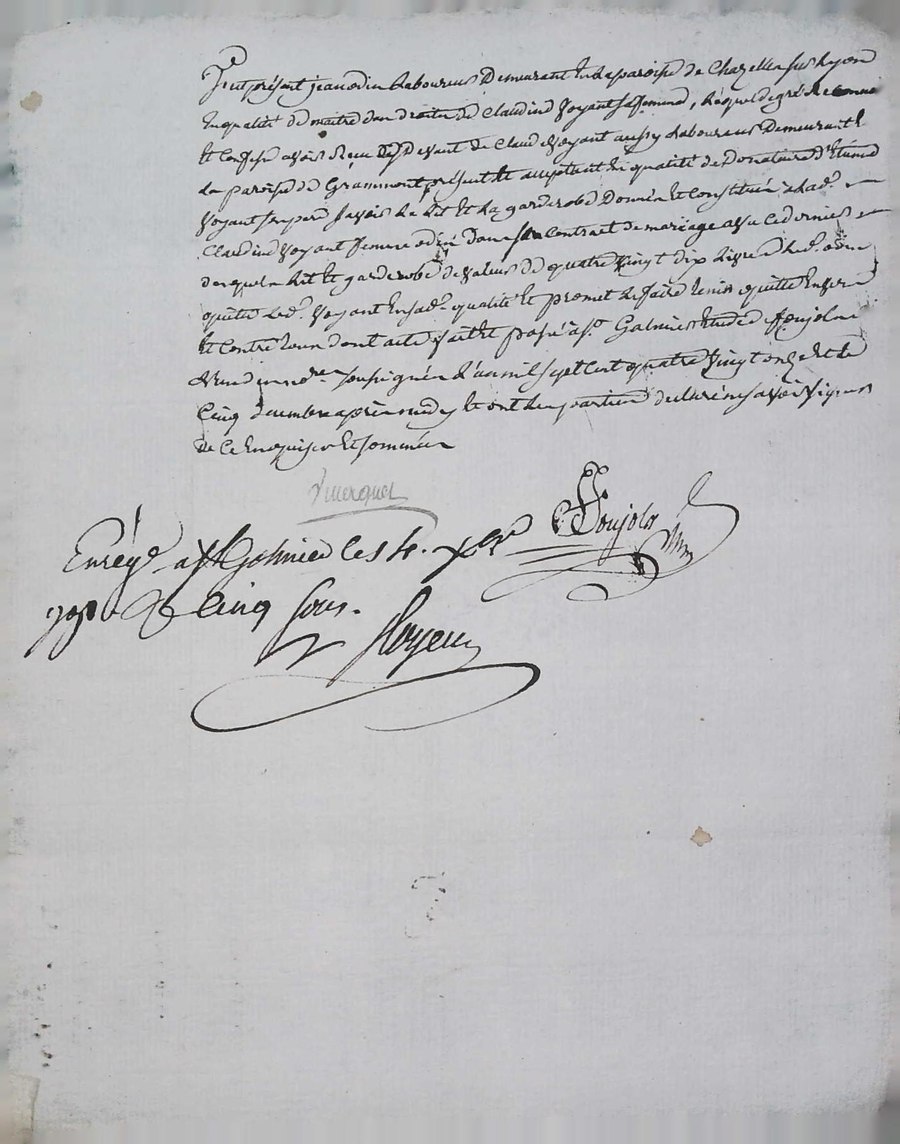 Fut présent jean odin Laboureur Demeurant En La paroisse de Chazelle sur Lyon
En qualité de maitre des droits de Claudine Voyant sa femme, Lequel de gré Reconnu
Et Confesse avoir Reçu cy devant de Claude Voyant aussy Laboureur Demeurant En
La paroisse de Grammont présent Et acceptant En qualité de Donataire d'Etienne
Voyant son pere savoir Le Lit Et La garderobe Donnés Et Constitués a Lad.
Claudine Voyant femme odin Dans son Contrat de mariage avec ce dernier
desquels Lit Et garderobe de valeur de quatre vingt dix Livres Led. odin
quitte Led. Voyant En sad. qualité Et promet Le faire tenir quitte Envers
Et Contre tous dont acte fait Et passé a St Galmier Etude de Poujols
L'un des no.res soussignés L'an mil sept cent quatre vingt onze Et le
Cinq Décembre après midy Et ont Les parties déclaré ne savoir signer
de Ce Enquises Et sommées
Poujols
Enrég.é a St Galmier le 14. Xbre
1791 Cinq sous.